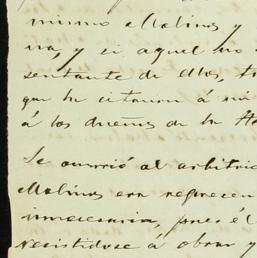 mismo Molinos y
na, y si aquel no
sentante de ellos, t
que he citarán á mi
á los dueños de la Ha
Se ocurrió al arbitrio
Molinos era represen
innecesaria, pues él
resistídose á obrar y